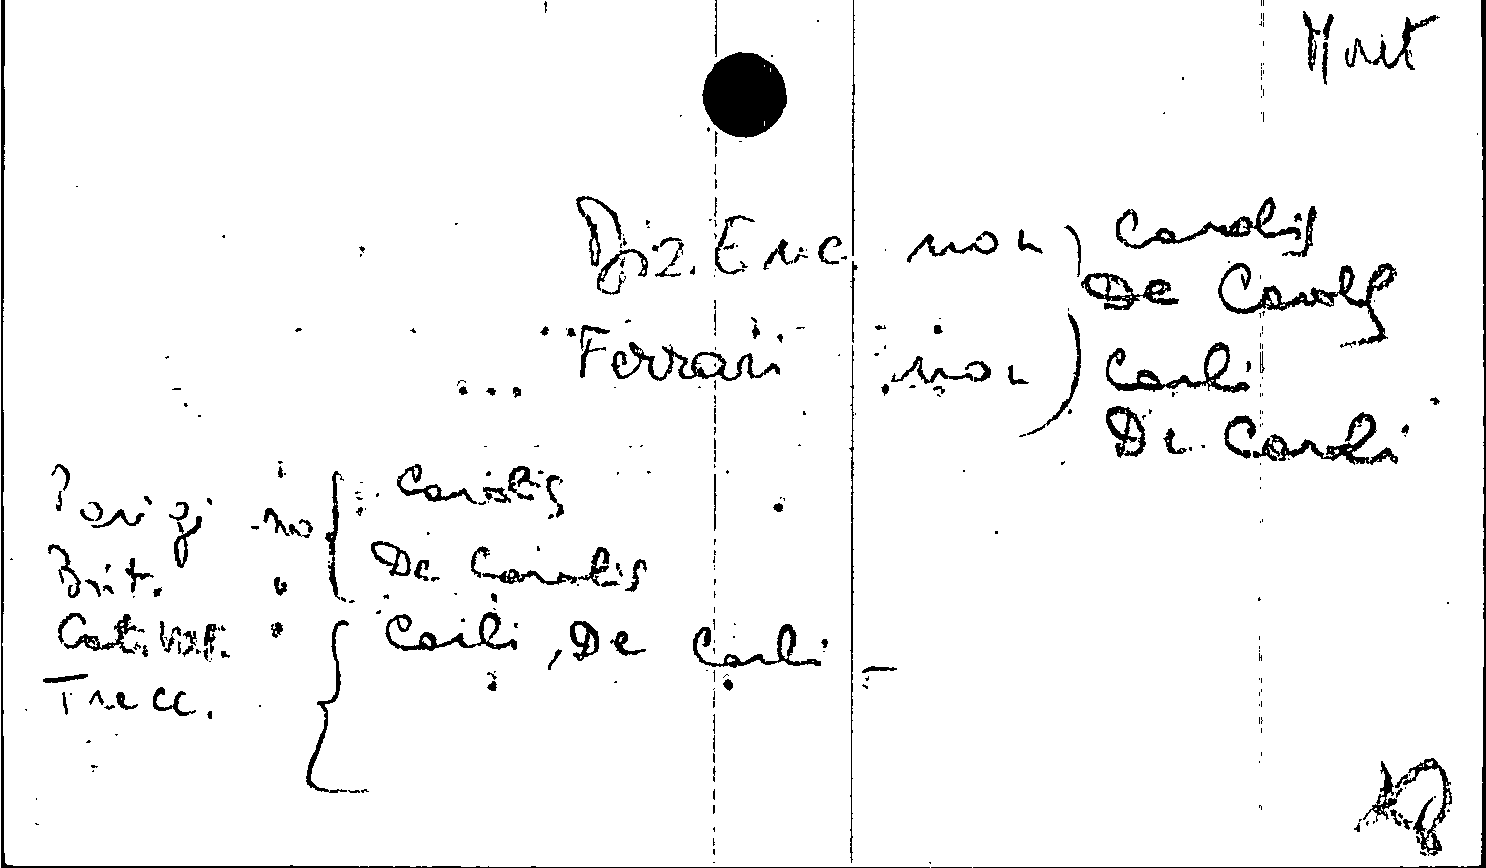 Diz. Enc. non ) Carolis
De Carolis
Ferrari non ) Carli
De Carli
Parigi no { Carolis
Brit. " De Carolis
Cat. Vat. " { Carli, De Carli -
Trecc.